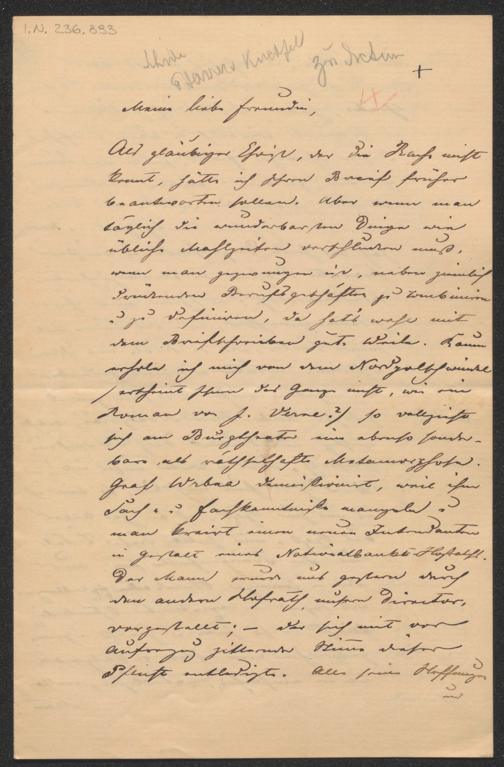 I.N. 236.883
Pfarrer Kneffel
Meine liebe Freundin,
Als gläubiger Christ, der die Rache nicht
kennt, hätte ich Ihren Brief früher
beantworten sollen. Aber wenn man
täglich die wunderbarsten Dinge wie
übliche Mahlzeiten verschlucken muß,
wenn man gezwungen ist, neben ziemlich
drückenden Berufsgeschäften zu kombiniren
u zu definiren, da hat's wohl mit
dem Briefschreiben gute Weile. Kaum
erhole ich mich von dem Nordpolschwindel
/ erscheint Ihnen das Ganze nicht, wie ein
Roman von J. Verne?/ so vollzieht
sich am Burgtheater eine ebenso sonder-
bare als räthselhafte Metamorphose.
Graf Wrbna demissionirt, weil ihm
Sach- u. Fachkenntniße mangeln u
man kreirt einen neuen Intendanten
in Gestalt eines Nationalbank-Hofraths.
Der Mann wurde uns gestern durch
den andern Hofrath, unsern Director,
vorgestellt; – der sich mit vor
Aufregung zitternder Stimme dieser
Pflicht entledigte. Alle seine Hoffnungen
und